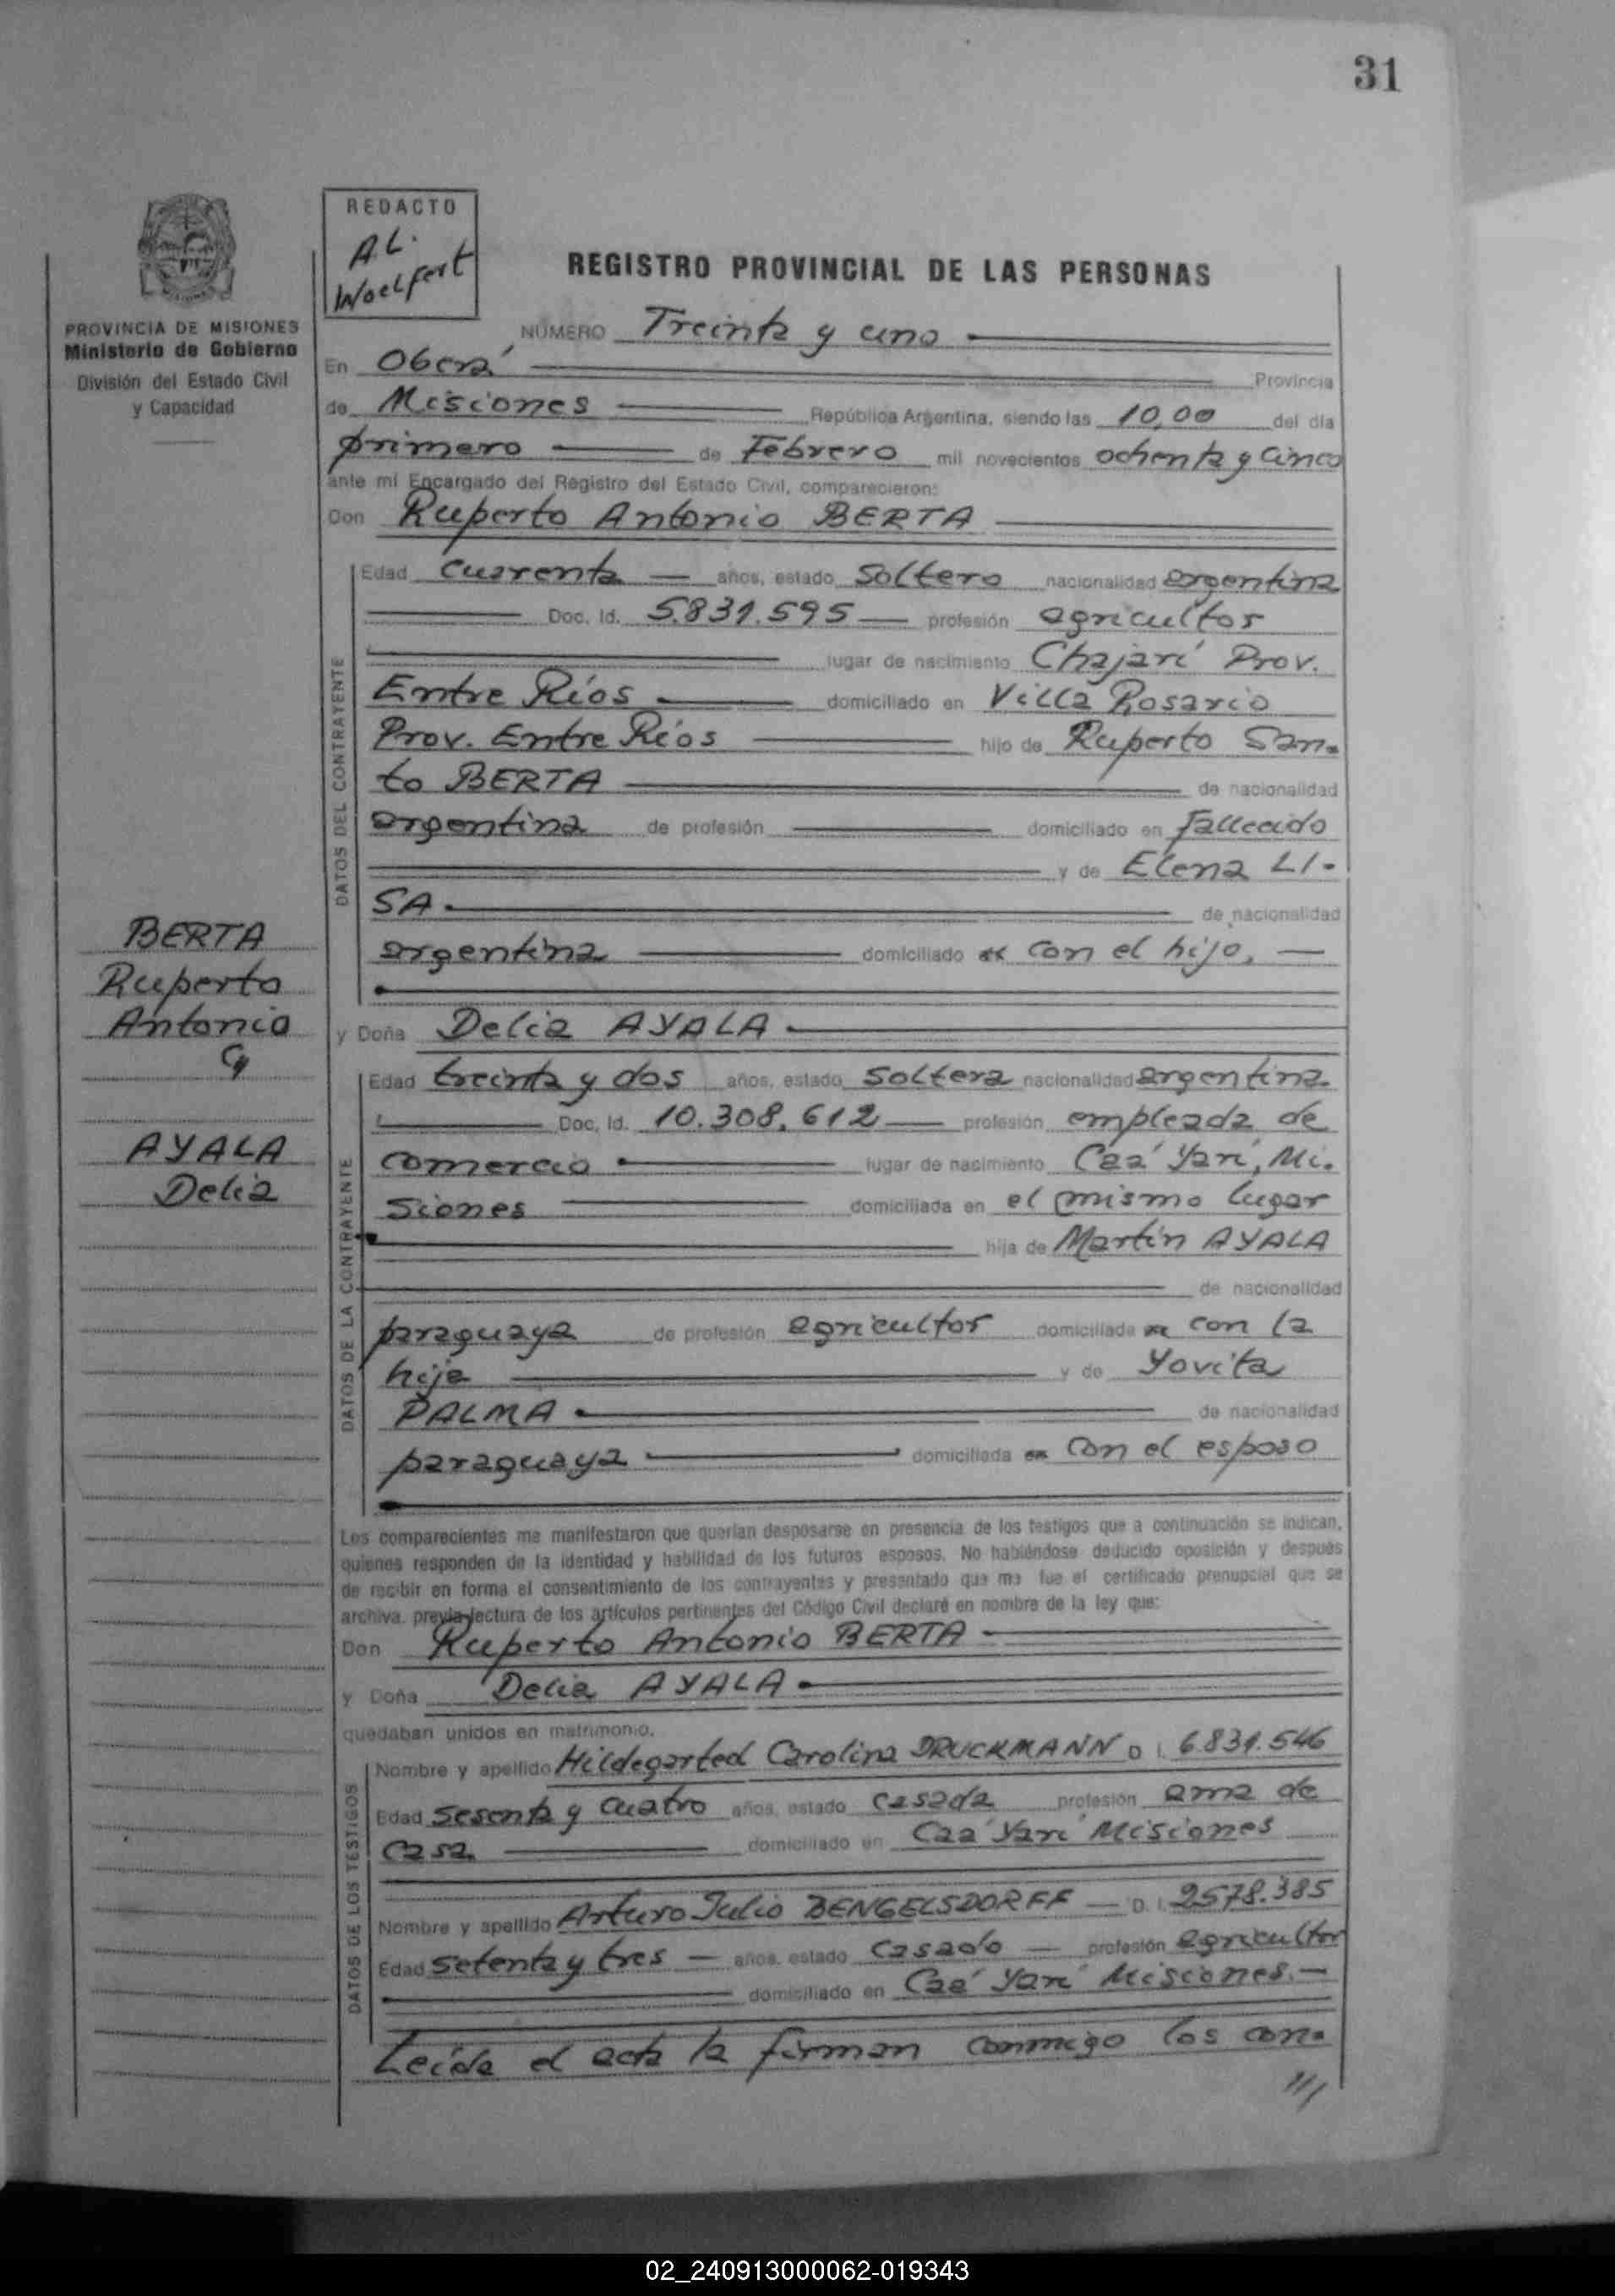 31
REDACTO
A.L.
Woelfert
REGISTRO PROVINCIAL DE LAS PERSONAS
PROVINCIA DE MISIONES
Ministerio de Gobierno
División del Estado Civil
y Capacidad
NÚMERO Treinta y uno
En Oberá Provincia
de Misiones República Argentina, siendo las 10,00 del día
primero de Febrero mil novecientos ochenta y cinco
ante mí Encargado del Registro del Estado Civil, comparecieron:
Don Ruperto Antonio BERTA
DATOS DEL CONTRAYENTE
Edad cuarenta años, estado Soltero nacionalidad argentina
Doc. Id. 5.831.595 profesión agricultor
lugar de nacimiento Chajarí Prov.
Entre Ríos domiciliado en Villa Rosario
Prov. Entre Ríos hijo de Ruperto San-
to BERTA de nacionalidad
argentina de profesión domiciliado en fallecido
y de Elena LI-
SA. de nacionalidad
argentina domiciliado con el hijo,
BERTA
Ruperto
Antonio
y
AYALA
Delia
y Doña Delia AYALA
DATOS DE LA CONTRAYENTE
Edad treinta y dos años, estado Soltera nacionalidad argentina
Doc. Id. 10.308.612 profesión empleada de
comercio lugar de nacimiento Caá Yarí, Mi-
siones domiciliada en el mismo lugar
hija de Martín AYALA
de nacionalidad
paraguaya de profesión agricultor domiciliado con la
hija y de Yovita
PALMA de nacionalidad
paraguaya domiciliada en con el esposo
Los comparecientes me manifestaron que querían desposarse en presencia de los testigos que a continuación se indican,
quienes responden de la identidad y habilidad de los futuros esposos. No habiéndose deducido oposición y después
de recibir en forma el consentimiento de los contrayentes y presentado que me fue el certificado prenupcial que se
archiva, previa lectura de los artículos pertinentes del Código Civil declaré en nombre de la ley que:
Don Ruperto Antonio BERTA
y Doña Delia AYALA
quedaban unidos en matrimonio.
DATOS DE LOS TESTIGOS
Nombre y apellido Hildegarted Carolina DRUCKMANN D.I. 6.831.546
Edad sesenta y cuatro años, estado casada profesión ama de
casa domiciliado en Caá Yarí Misiones
Nombre y apellido Arturo Julio BENGELSDORFF D.I. 2578.385
Edad setenta y tres años, estado casado profesión agricultor
domiciliado en Caá Yarí Misiones.
Leída el acta la firman conmigo los con-
///
02_240913000062-019343